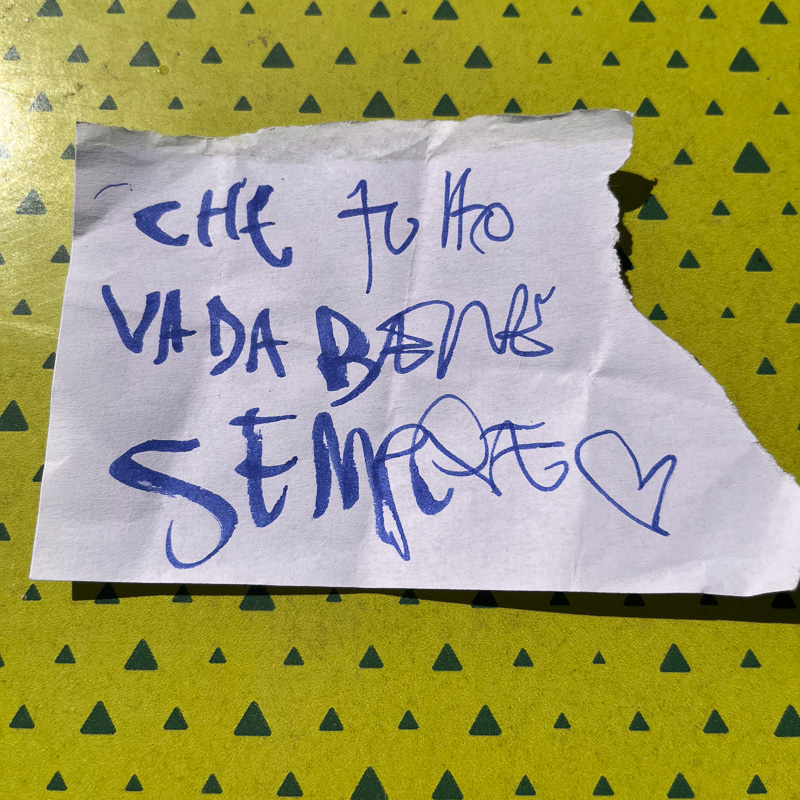 CHE tutto
VADA BENE
SEMPRE ♡